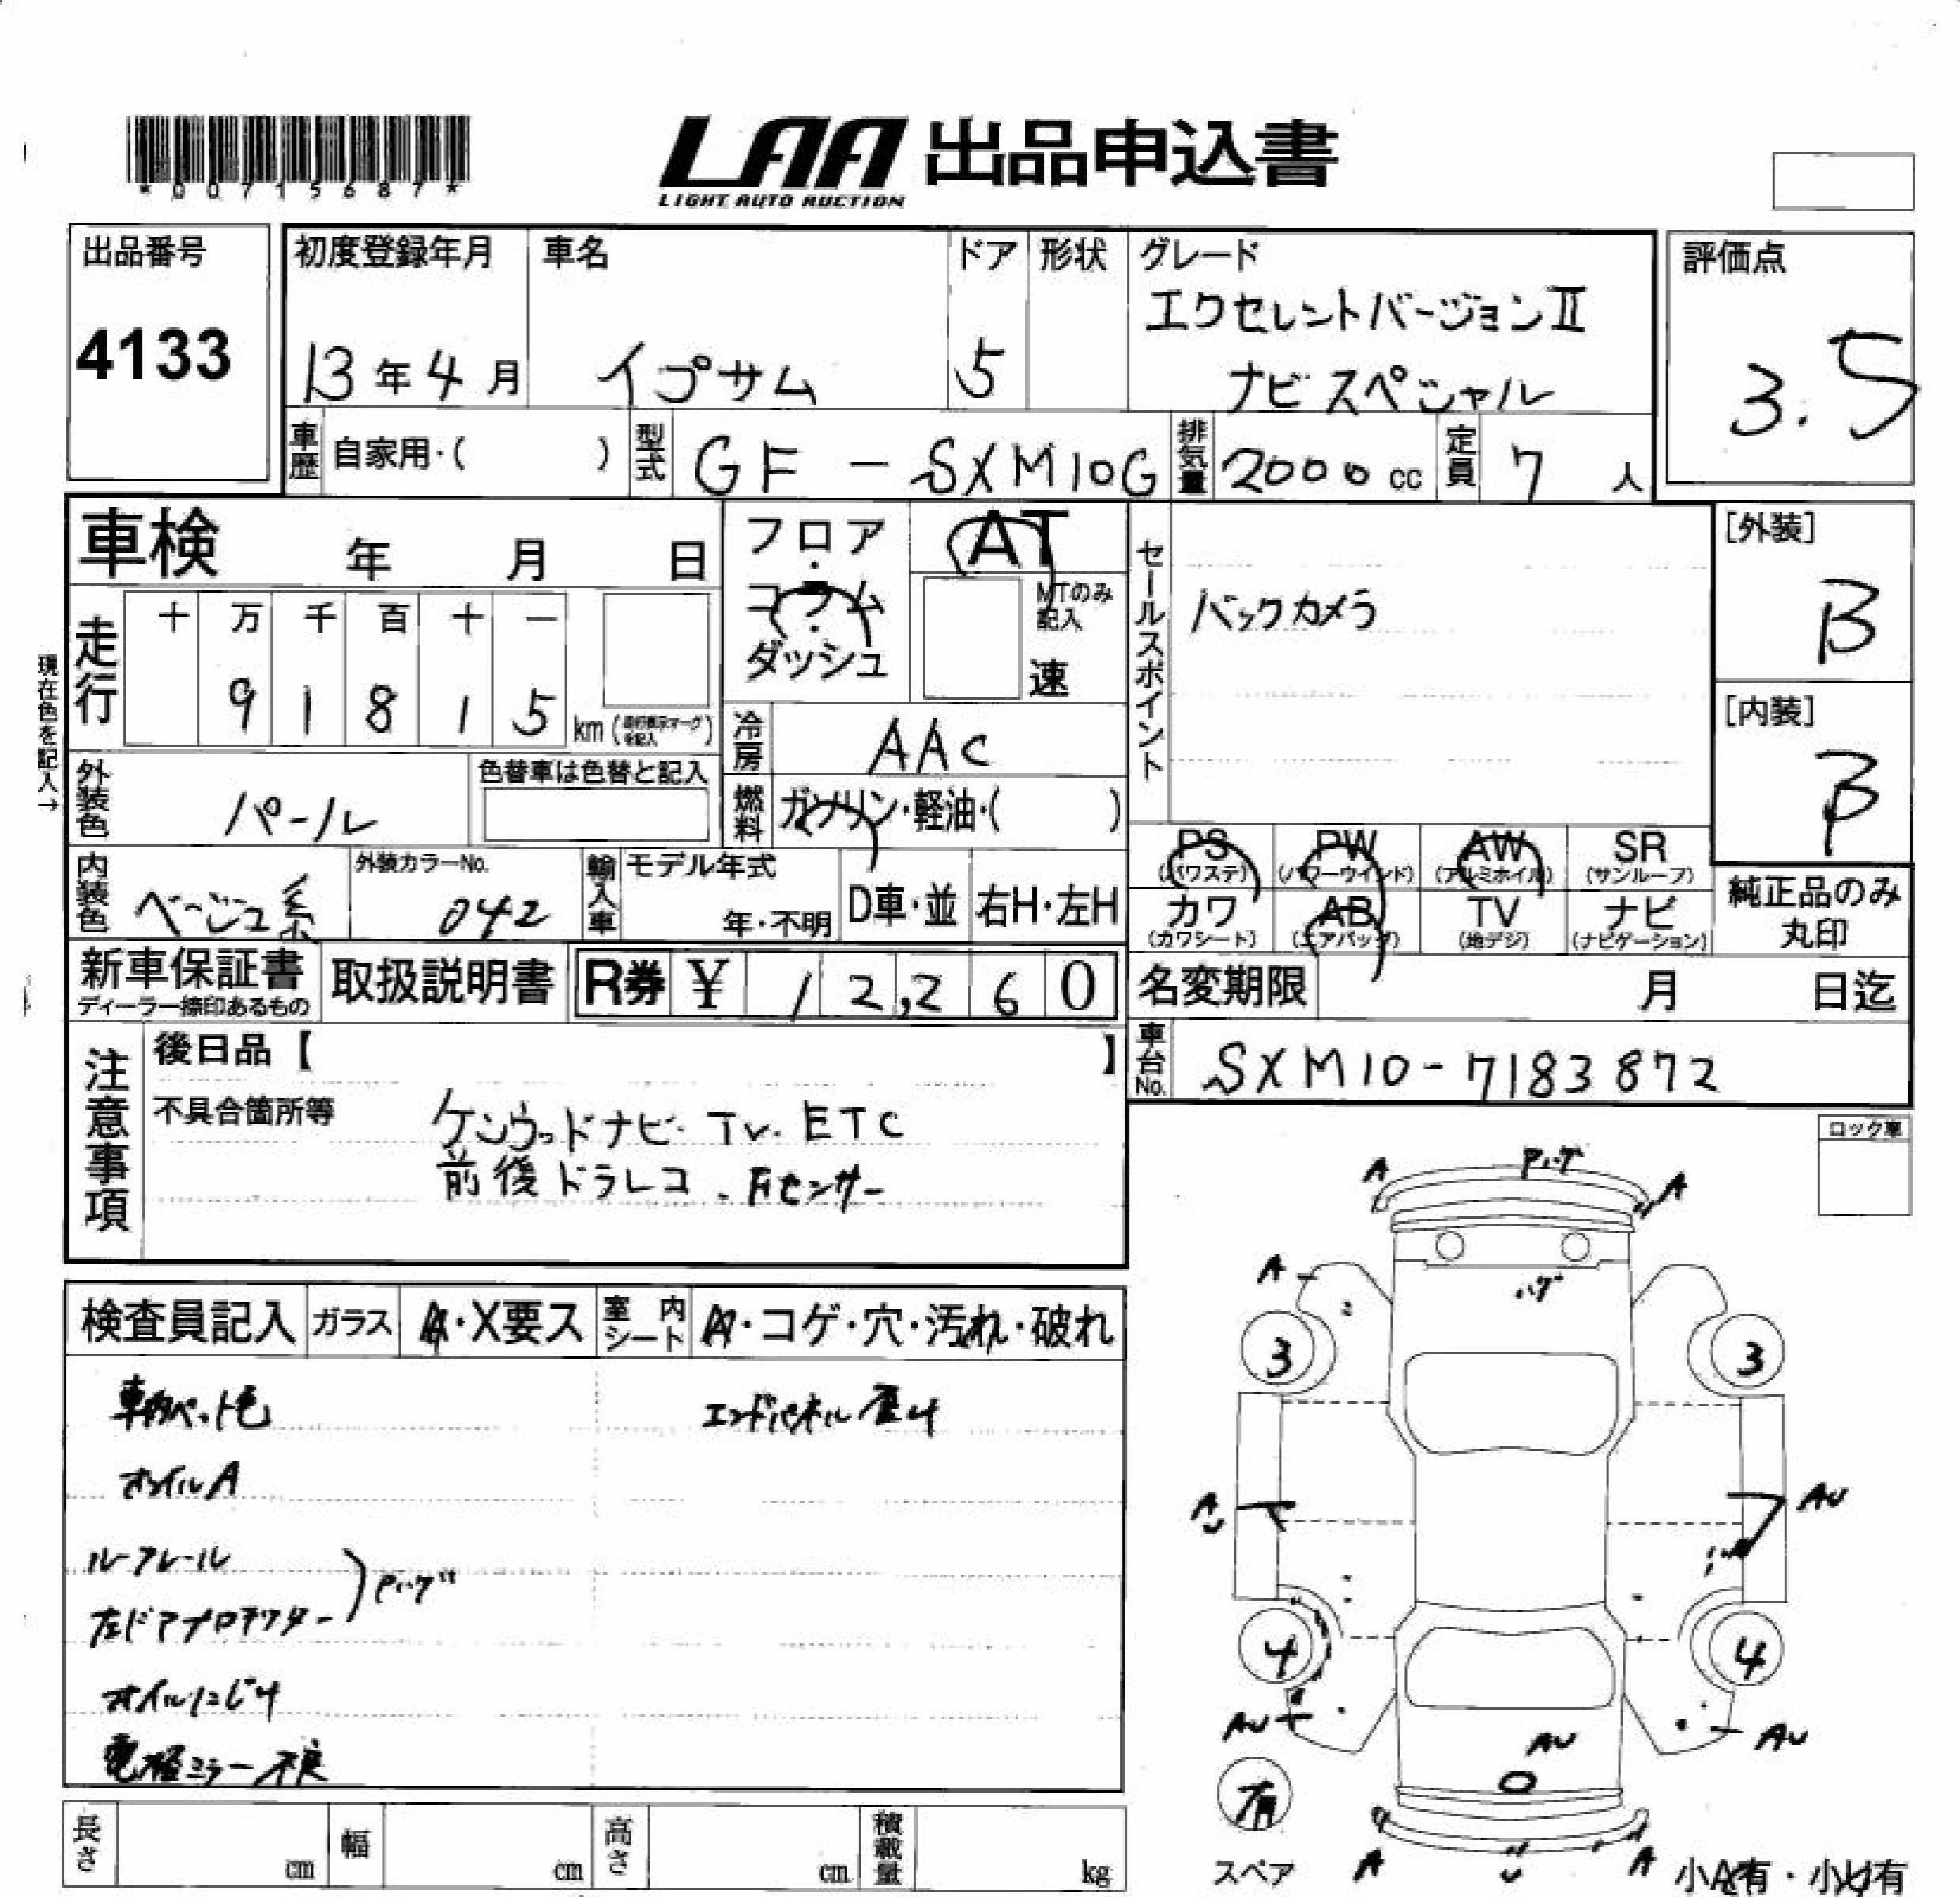 *00715687*
LAA 出品申込書
LIGHT AUTO AUCTION
出品番号
4133
初度登録年月
13年4月
車名
イプサム
ドア
5
形状
グレード
エクセレントバージョンⅡ
ナビスペシャル
評価点
3.5
車歴 自家用・( )
型式 GF-SXM10G
排気量 2000cc
定員 7人
車検 年 月 日
フロア・コラム・ダッシュ
AT
MTのみ記入
速
走行
十 万 千 百 十 一
9 1 8 1 5 km
現在色を記入→
冷房 AAC
セールスポイント
バックカメラ
[外装]
B
[内装]
B
外装色 パール
色替車は色替と記入
燃料 ガソリン・軽油・( )
内装色 ベージュ系
外装カラーNo.
042
輸入車 モデル年式
年・不明
D車・並 右H・左H
PS (パワステ)
PW (パワーウインド)
AW (アルミホイル)
SR (サンルーフ)
カワ (カワシート)
AB (エアバッグ)
TV (地デジ)
ナビ (ナビゲーション)
純正品のみ
丸印
新車保証書
ディーラー捺印あるもの
取扱説明書
R券 ¥ 12,260
名変期限 月 日迄
車台No. SXM10-7183872
注意事項
後日品【 】
不具合箇所等
ケンウッドナビ・TV. ETC
前後ドラレコ.
ロック車
検査員記入 ガラス A・X要ス 室内シート A・コゲ・穴・汚れ・破れ
エンドパネル
ルーフレール
左ドアプロテクター
Pハゲ
オイルにじみ
ミラー不良
A
Pハゲ
A
A
ハゲ
3
3
AU
AU
4
4
AU
AU
AU
有
スペア
A
U
A
小A有・小U有
長さ cm 幅 cm 高さ cm 積載量 kg